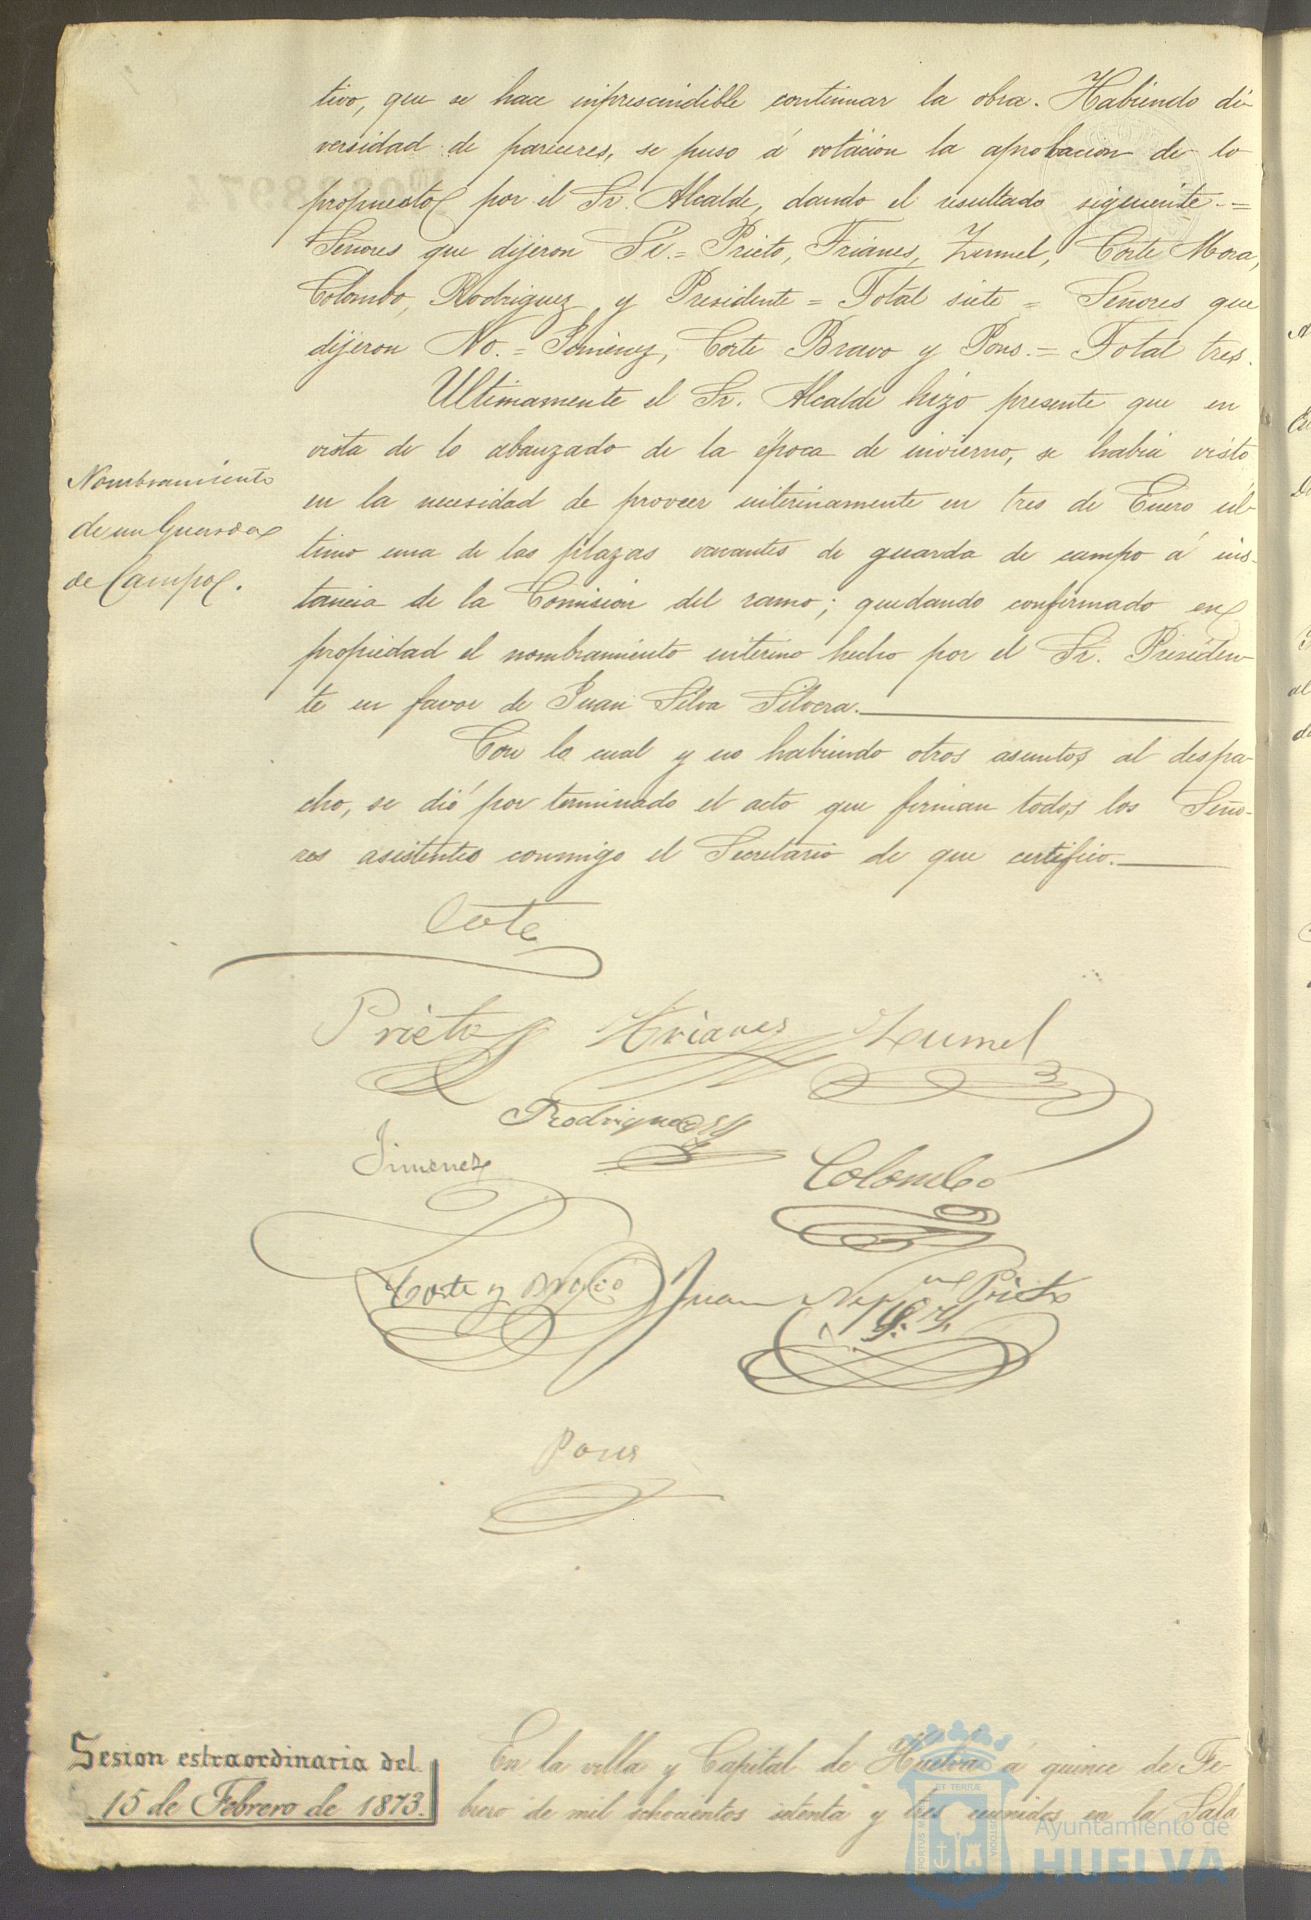 tivo, que se hace inprescindible continuar la obra. Habiendo di-
versidad de pareceres, se puso á votación la aprobacion de lo
propuesto por el Sr. Alcalde, dando el resultado siguiente.=
Señores que dijeron Sí.= Prieto, Trianes, Zumel, Corte Mora,
Colombo, Rodriguez y Presidente = Total siete = Señores que
dijeron No.= Jiménez, Corte Bravo y Pons.= Total tres.
Ultimamente el Sr. Alcalde hizo presente que en
vista de lo abanzado de la época de invierno, se habia visto
Nombramiento
de un Guarda
de Campo.
en la necesidad de proveer interinamente en tres de Enero úl-
timo una de las plazas vacantes de guarda de campo á ins-
tancia de la Comision del ramo; quedando confirmado en
propiedad el nombramiento interino hecho por el Sr. Presiden-
te en favor de Juan Silva Silvera.
Con lo cual y no habiendo otros asuntos al despa-
cho, se dió por terminado el acto que firman todos los Seño-
res asistentes conmigo el Secretario de que certifico.
Corte
Prieto Trianes Zumel
Rodriguez
Jimenez Colombo
Corte y Bravo Juan Prieto
Pons
Sesion estraordinaria del
15 de Febrero de 1873.
En la villa y Capital de Huelva á quince de Fe-
brero de mil ochocientos setenta y tres reunidos en la Sala
Ayuntamiento de
HUELVA